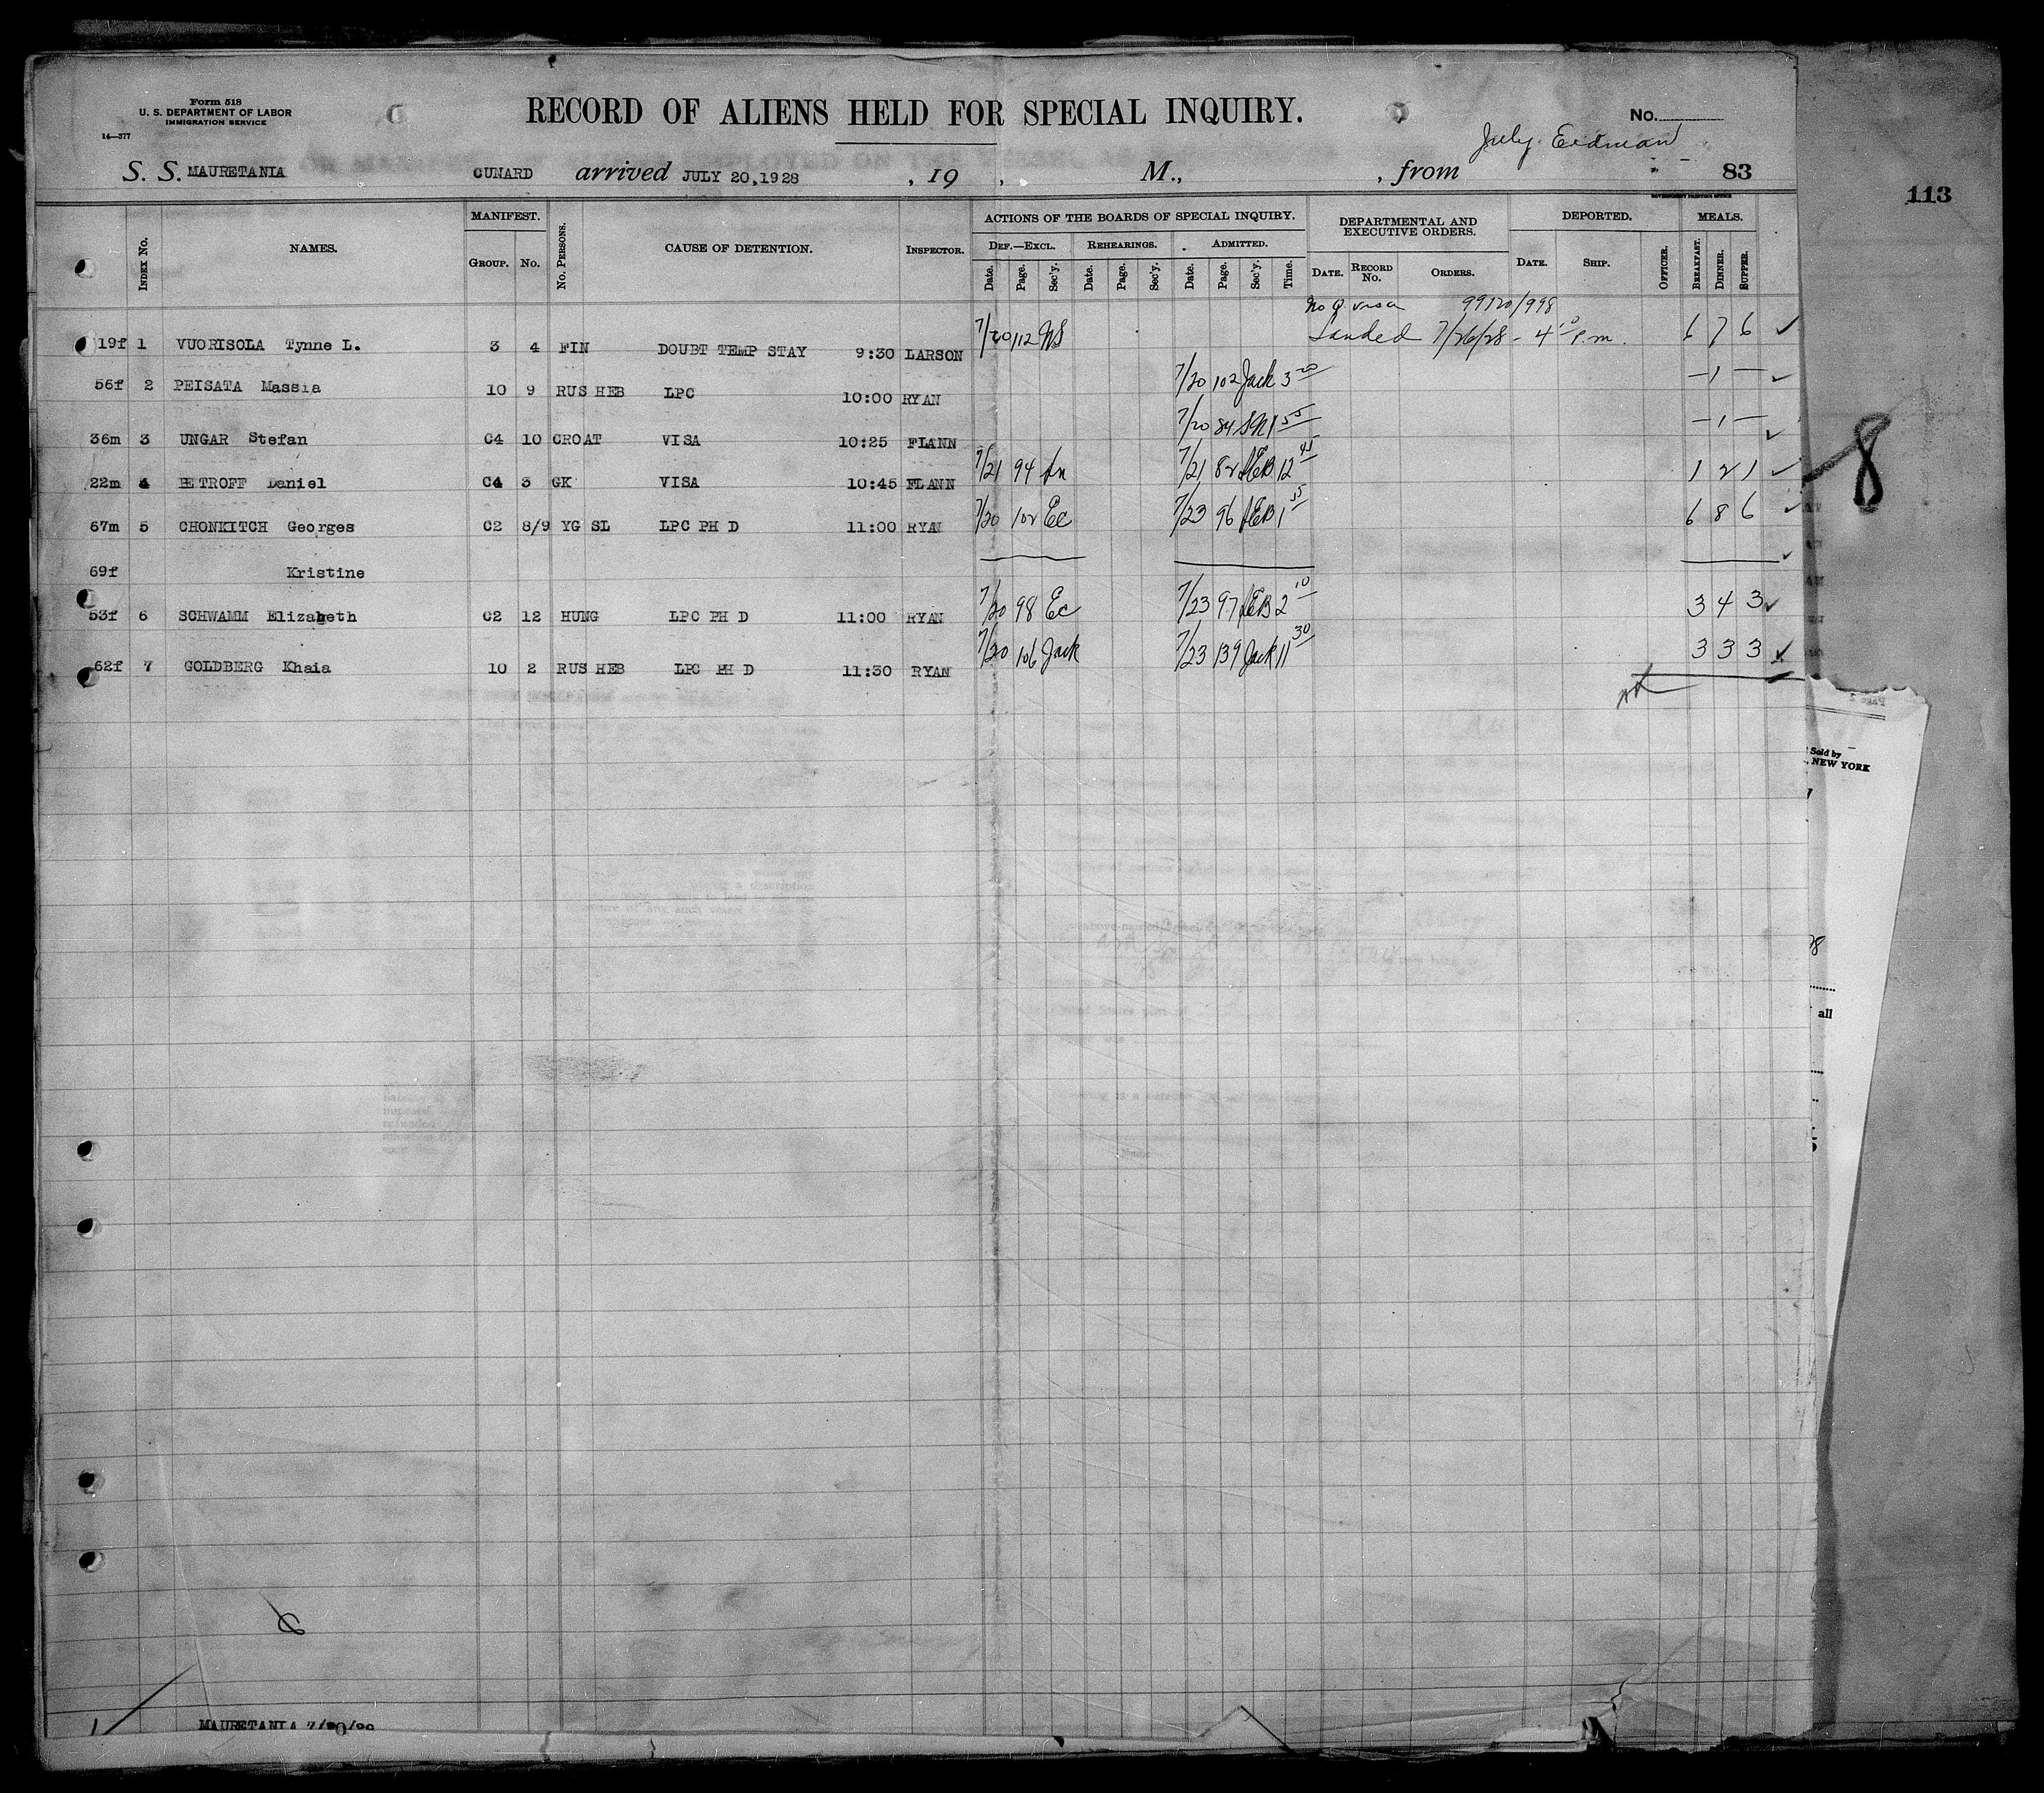 Form 518
U. S. DEPARTMENT OF LABOR
IMMIGRATION SERVICE
14—377
RECORD OF ALIENS HELD FOR SPECIAL INQUIRY.
No.
July Eidman
S. S. MAURETANIA CUNARD arrived JULY 20,1928 , 19 , M., , from 83
113
GOVERNMENT PRINTING OFFICE
MANIFEST. ACTIONS OF THE BOARDS OF SPECIAL INQUIRY. DEPARTMENTAL AND EXECUTIVE ORDERS. DEPORTED. MEALS.
INDEX NO. NAMES. GROUP. NO. NO. PERSONS. CAUSE OF DETENTION. INSPECTOR. DEF.—EXCL. REHEARINGS. ADMITTED.
Date. Page. Sec'y. Date. Page. Sec'y. Date. Page. Sec'y. Time. DATE. RECORD NO. ORDERS. DATE. SHIP. OFFICER. BREAKFAST. DINNER. SUPPER.
No Q visa 99120/998
19f 1 VUORISOLA Tynne L. 3 4 FIN DOUBT TEMP STAY 9:30 LARSON 7/20 112 Landed 7/26/28 - 4 10 P.m. 6 7 6 ✓
56f 2 PEISATA Massia 10 9 RUS HEB LPC 10:00 RYAN 7/20 102 Jack 3 20 — 1 — ✓
36m 3 UNGAR Stefan C4 10 CROAT VISA 10:25 FLANN 7/20 84 1 55 — 1 — ✓
22m 4 PETROFF Daniel C4 3 GK VISA 10:45 FLANN 7/21 94 7/21 82 12 45 1 2 1 ✓
67m 5 CHONKITCH Georges C2 8/9 YG SL LPC PH D 11:00 RYAN 7/20 102 Ec 7/23 96 1 55 6 8 6 ✓
69f Kristine ✓
53f 6 SCHWAMM Elizabeth C2 12 HUNG LPC PH D 11:00 RYAN 7/20 98 Ec 7/23 97 2 10 3 4 3 ✓
62f 7 GOLDBERG Khaia 10 2 RUS HEB LPC PH D 11:30 RYAN 7/20 106 Jack 7/23 139 Jack 11 30 3 3 3 ✓
8
Sold by
, NEW YORK
all
MAURETANIA 7/20/28